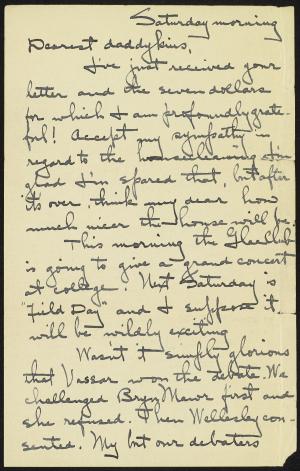 Saturday morning
Dearest daddykins,
I've just received your
letter and the seven dollars
for which I am profoundly grate-
ful! Accept my sympathy in
regard to the housecleaning I'm
glad I'm spared that, but after
it's over, think my dear how
much nicer the house will be.
This morning the Glee Club
is going to give a grand concert
at college. Next Saturday is
"Field Day" and I suppose it
will be wildly exciting
Wasn't it simply glorious
that Vassar won the debate. We
challenged Bryn Mawr first and
she refused. Then Wellesley con-
sented. My but our debaters